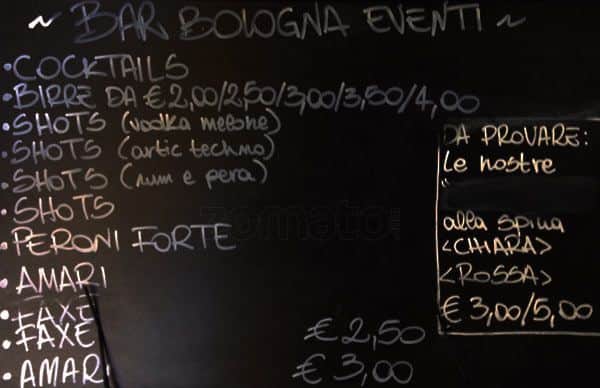 ~ BAR BOLOGNA EVENTI ~
• COCKTAILS
• BIRRE DA € 2,00/2,50/3,00/3,50/4,00
• SHOTS (vodka melone)
• SHOTS (artic techno)
• SHOTS (rum e pera)
• SHOTS
• PERONI FORTE
• AMARI
• FAXE
• FAXE € 2,50
• AMARI € 3,00
DA PROVARE:
le nostre
alla spina
<CHIARA>
<ROSSA>
€ 3,00/5,00
zomato